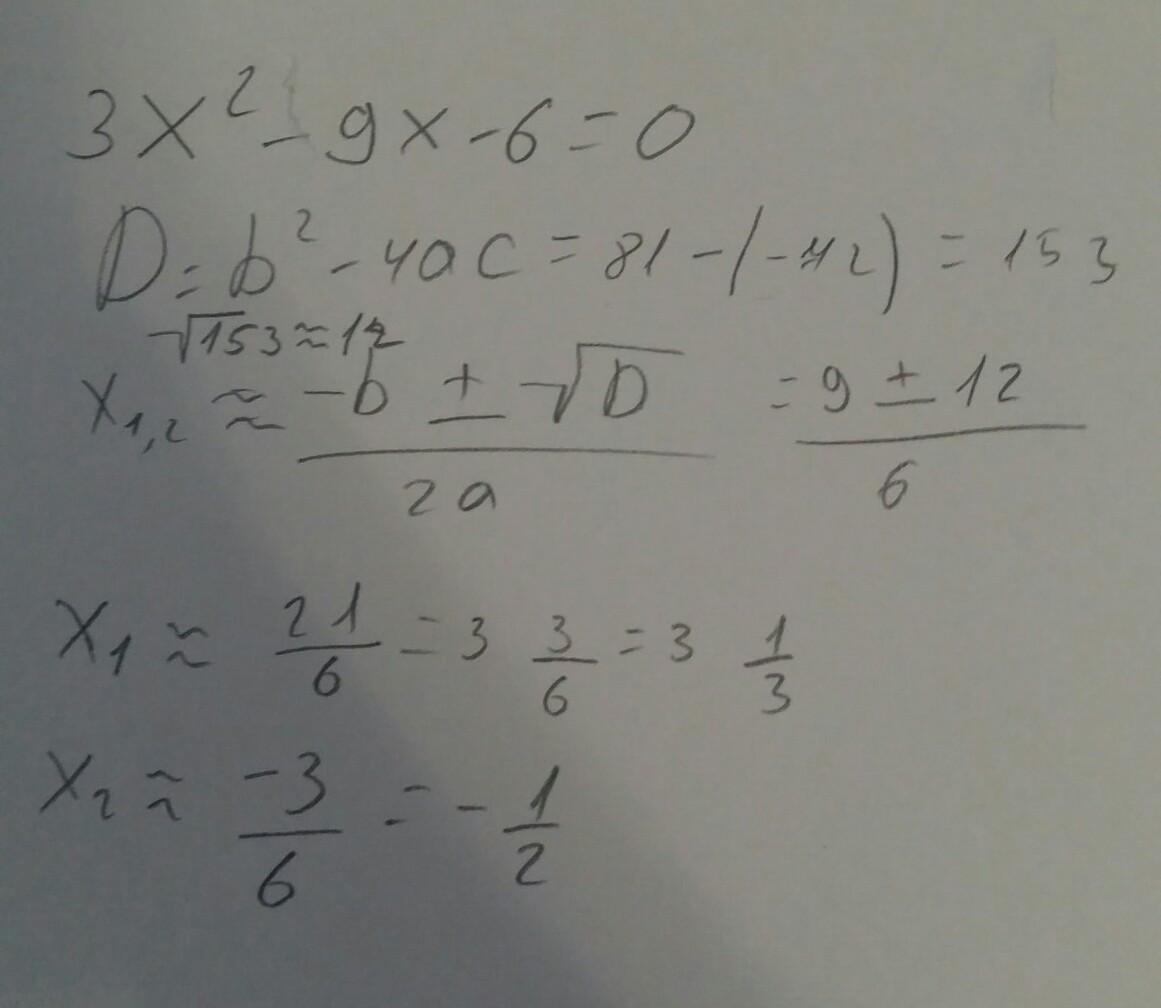 3x² - 9x - 6 = 0
D = b² - 4ac = 81 - (-72) = 153
√153 ≈ 12
x₁,₂ ≈ (-b ± √D) / 2a = (9 ± 12) / 6
x₁ ≈ 21/6 = 3 3/6 = 3 1/3
x₂ ≈ -3/6 = -1/2